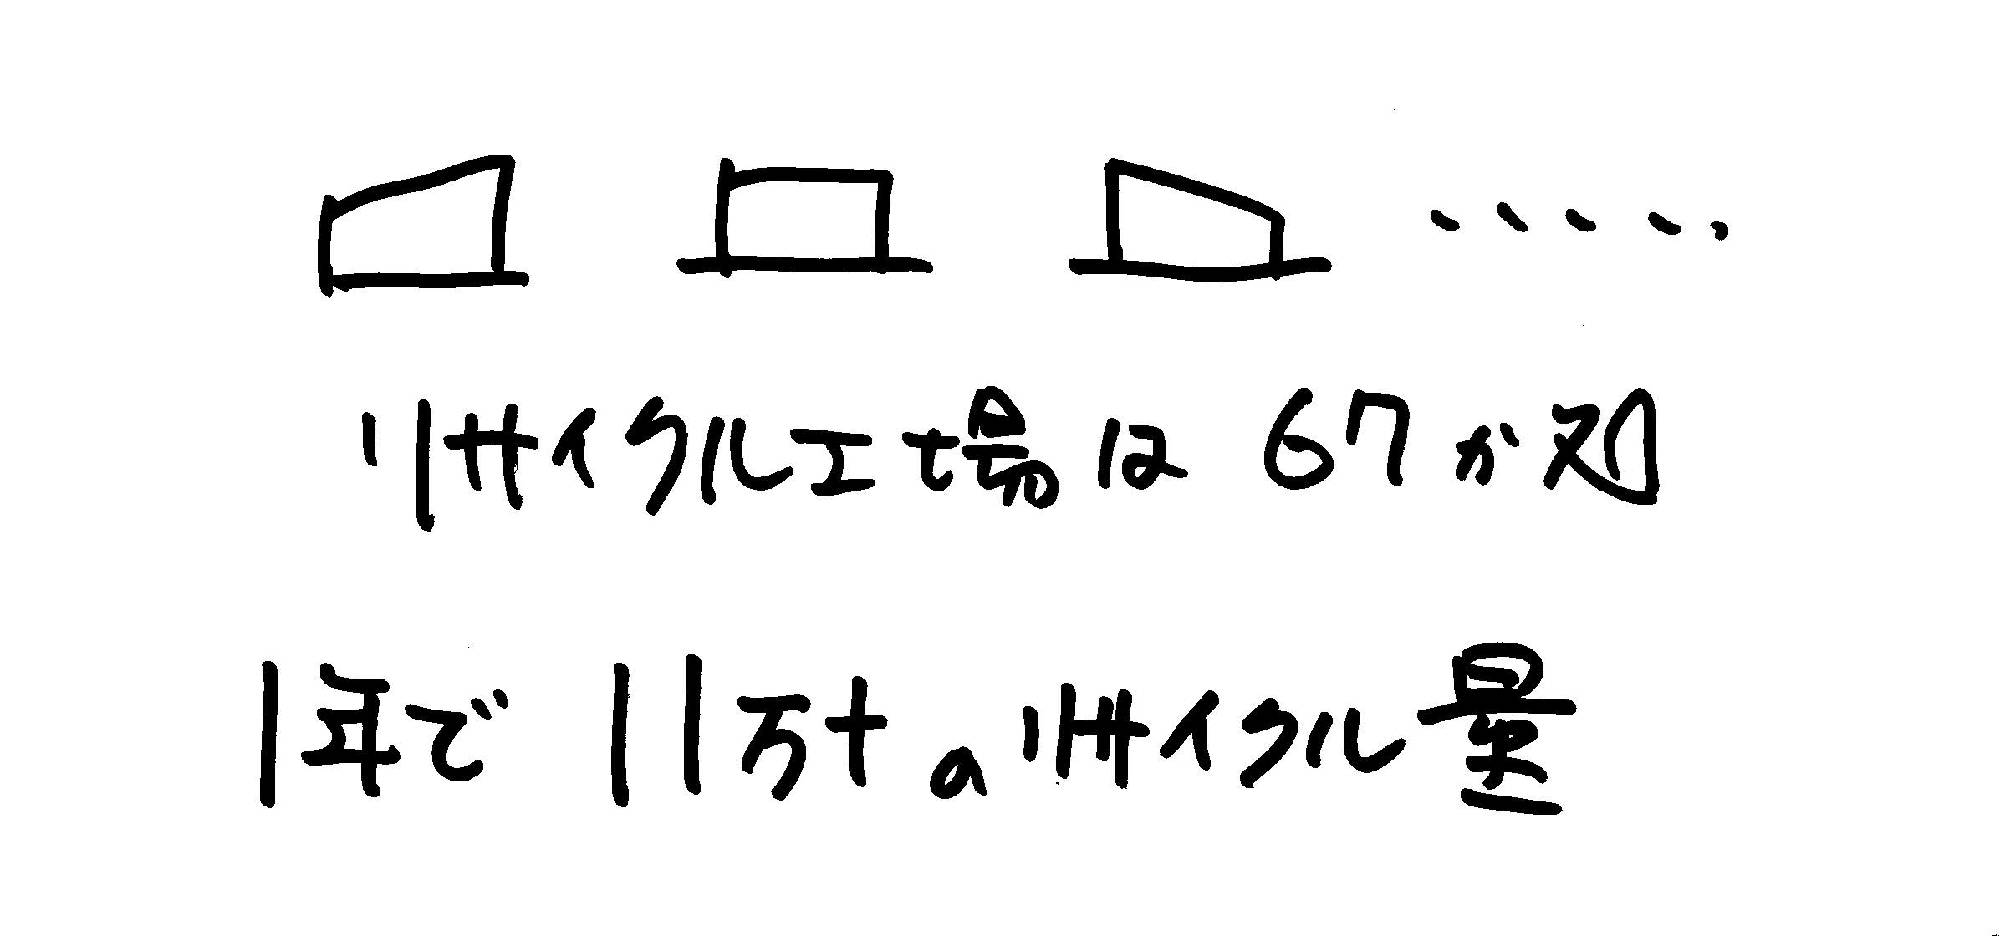 リサイクル工場は67か所
1年で11万tのリサイクル量